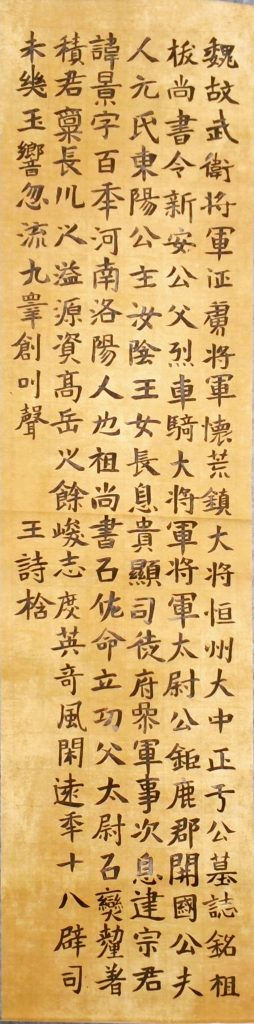 魏故武衛将軍征虜将軍懐荒鎮大将恒州大中正于公墓誌銘祖
柭尚書令新安公父烈車騎大将軍将軍太尉公鉅鹿郡開國公夫
人元氏東陽公主汝陰王女長息貴顯司徒府叅軍事次息建宗君
諱景字百年河南洛陽人也祖尚書石佐命立功父太尉石奱㪅著
積君稟長川之溢源資髙岳之餘峻志度英竒風閑遠秊十八辟司
未幾玉響忽流九睪創叫聲 王詩桧